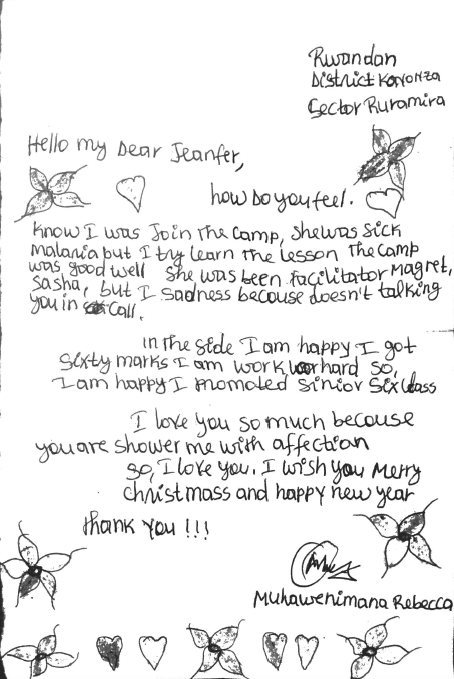 Rwandan
District Kayonza
Sector Ruramira
Hello my Dear Jeanfer,
how Do you feel.
know I was Join the camp, She was Sick
malaria but I try learn the lesson The camp
was good well She was been facilitator Magret,
Sasha, but I Sadness because doesn't talking
you in call.
in the Side I am happy I got
Sixty marks I am work hard so,
I am happy I Promoted Sinior Six class
I love you so much because
you are shower me with affection
So, I love you. I wish you Merry
christmass and happy new year
thank you !!!
Muhawenimana Rebecca